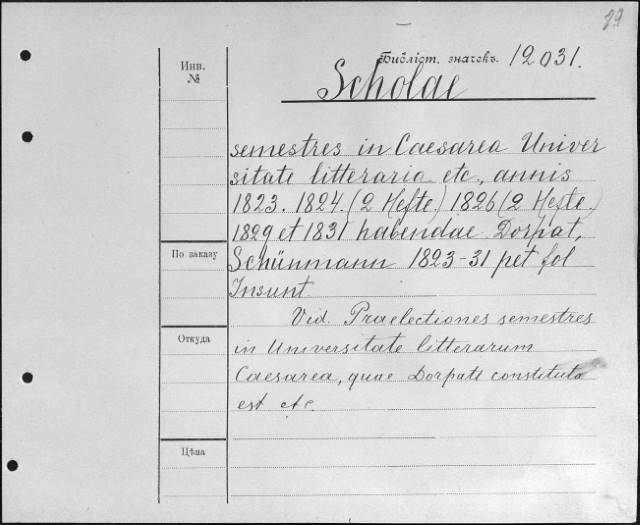 29
Библіот. значекъ. 12031.
Инв.
№
Scholae
semestres in Caesarea Univer
sitate litteraria etc., annis
1823. 1824. (2 Hefte) 1826 (2 Hefte)
1829 et 1831 habendae Dorpat,
По заказу
Schünmann 1823-31 pet fol
Insunt
Vid. Praelectiones semestres
Откуда
in Universitate litterarum
Caesarea, quae Dorpati constituta
est etc.
Цѣна